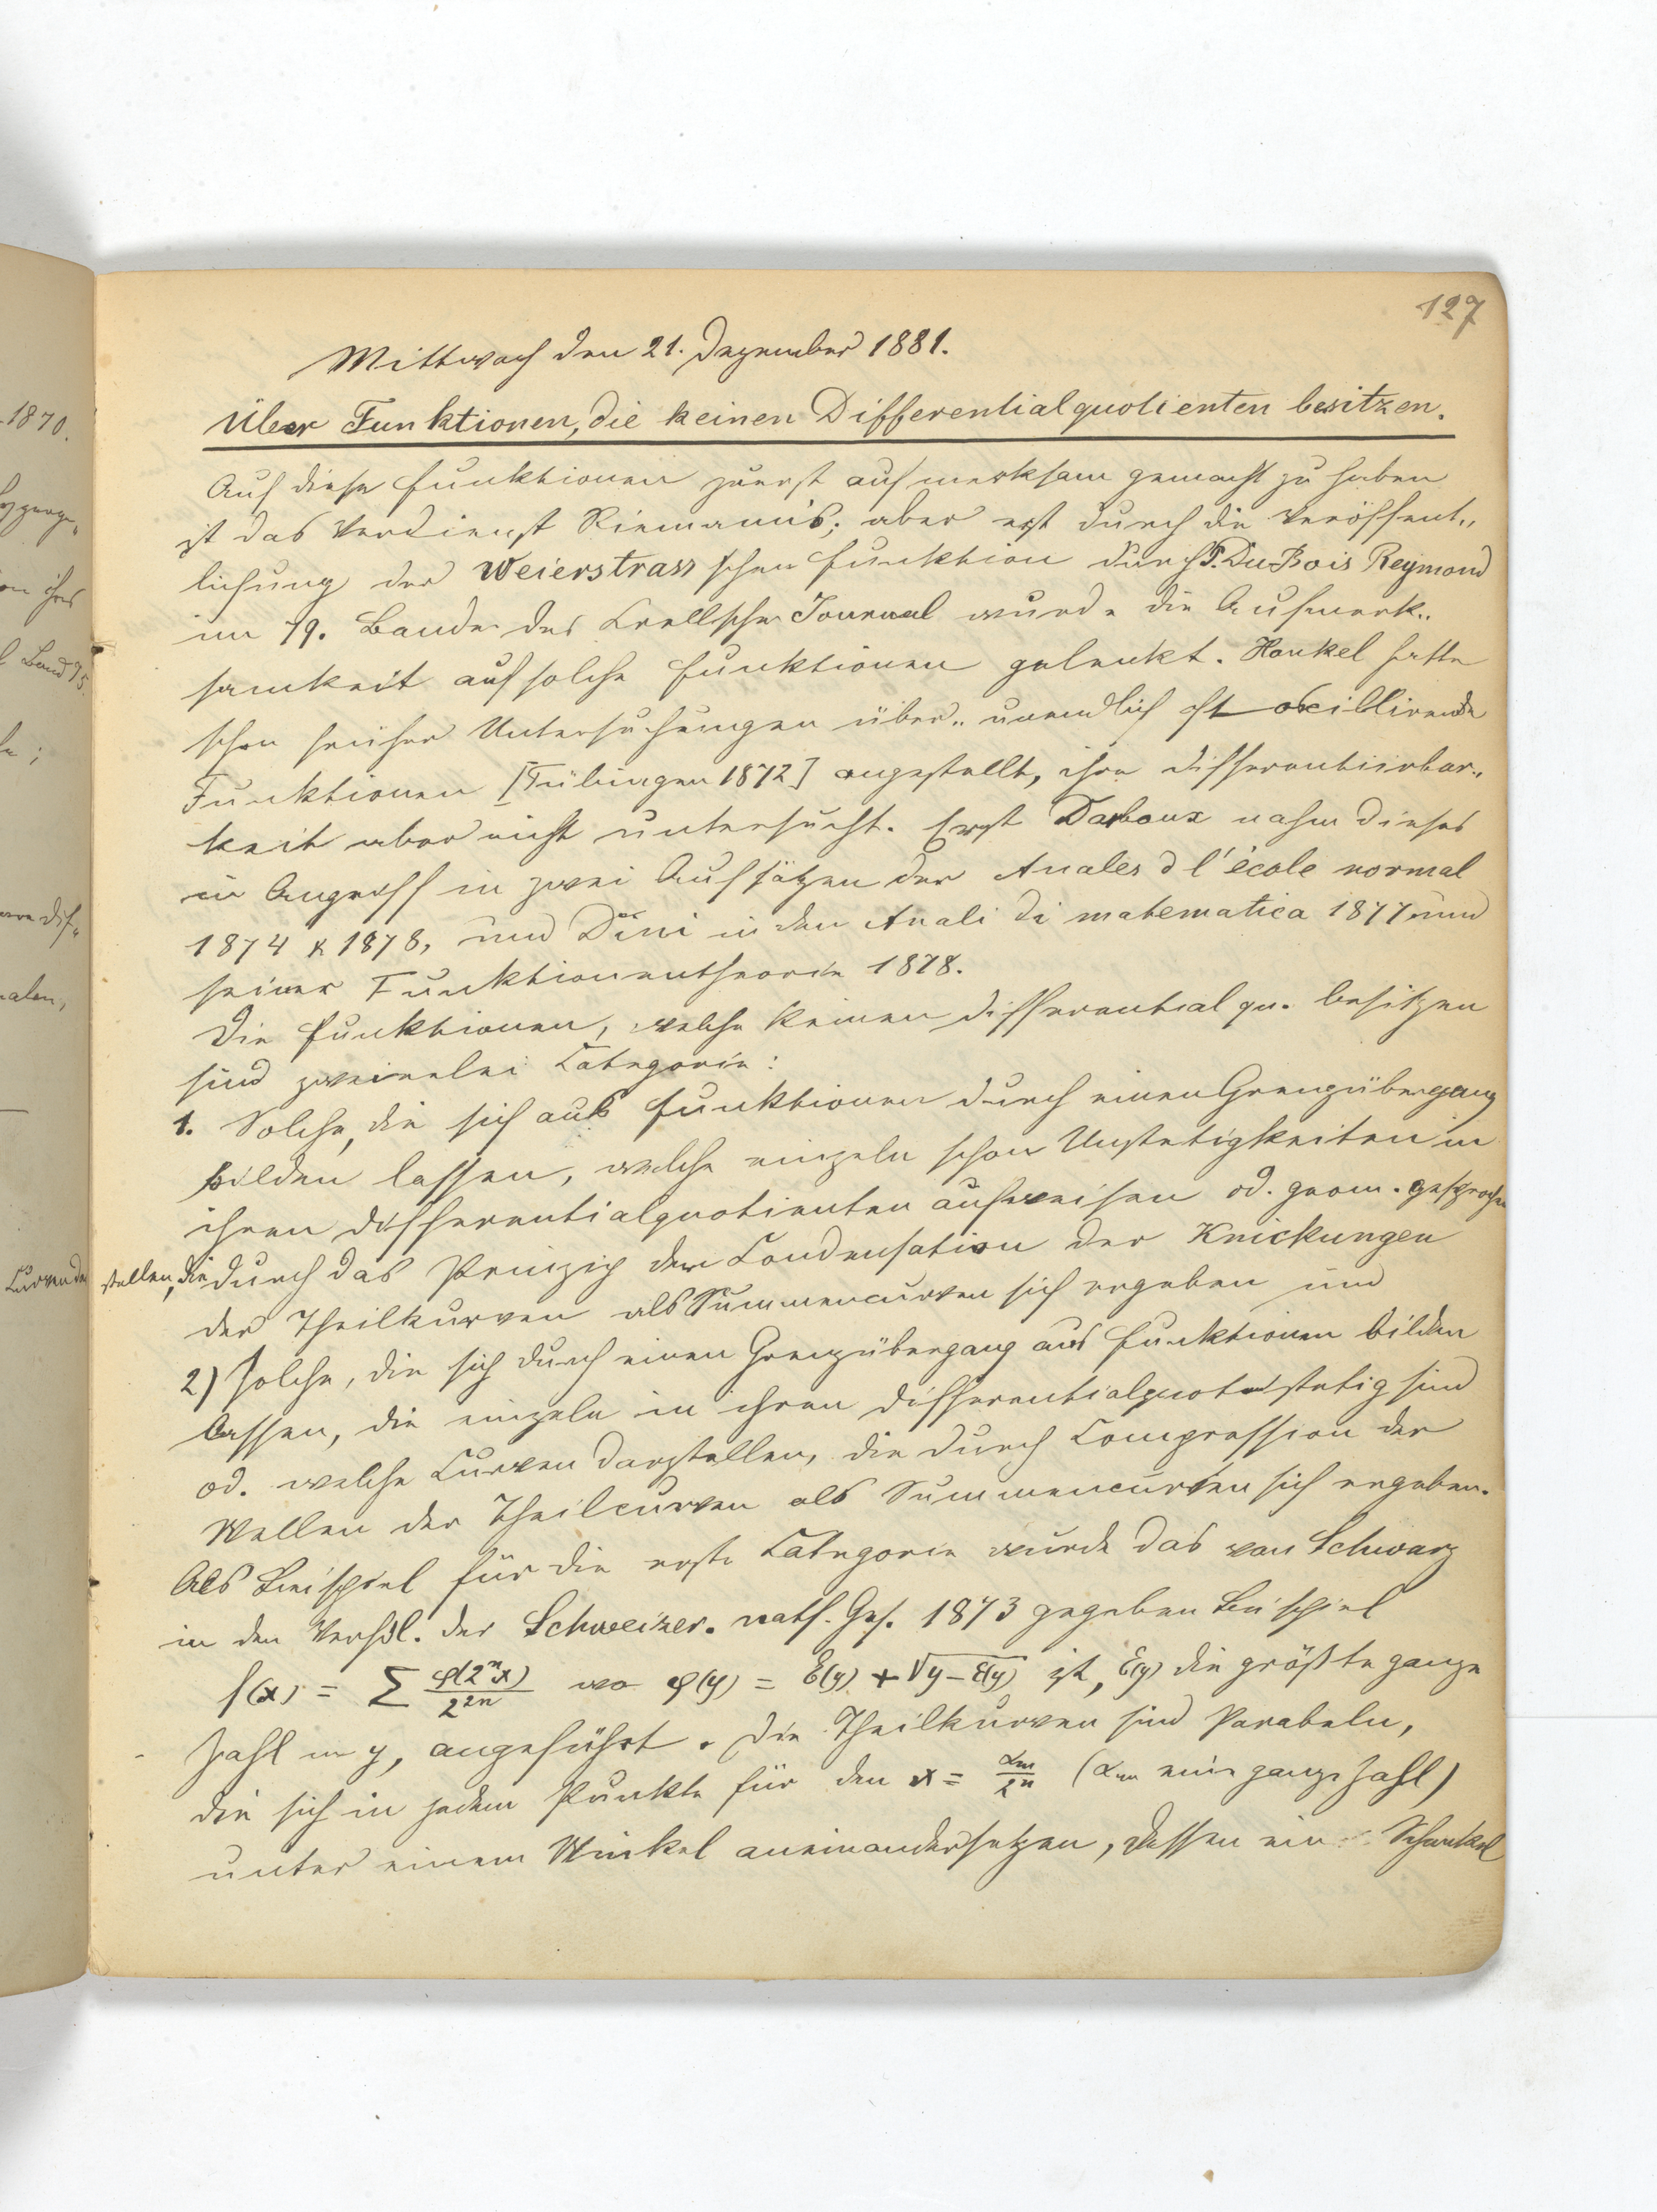 127
Mittwoch den 21. Dezember 1881.
Über Funktionen, die keinen Differentialquotienten besitzen.
Auf diese Funktionen zuerst aufmerksam gemacht zu haben
ist das Verdienst Riemann's; aber erst durch die Veröffent„
lichung der Weierstrass'schen Funktion durch P. Du Bois Reymond
im 79. Bande des Crellschen Journal wurde die Aufmerk„
samkeit auf solche Funktionen gelenkt. Hankel hatte
schon früher Untersuchungen über „unendlich oft oscillirende
Funktionen [Tübingen 1872] angestellt, ihre Differentiirbar„
keit aber nicht untersucht. Erst Darboux nahm dieses
in Angriff in zwei Aufsätzen der Anales d l'école normal
1874 & 1878, und Dini in den Anali di matematica 1877 und
seiner Funktionentheorie 1878.
Die Funktionen, welche keinen Differentialqu. besitzen
sind zweierlei Categorie:
1. Solche, die sich aus Funktionen durch einen Grenzübergang
bilden lassen, welche einzeln schon Unstetigkeiten in
ihren Differentialquotienten aufweisen od. geom. gesprochen
Curven dar stellen, die durch das Prinzip der Condensation der Knickungen
der Theilkurven als Summencurven sich ergeben und
2) solche, die sich durch einen Grenzübergang aus Funktionen bilden
lassen, die einzeln in ihren Differentialquot stetig sind
od. welche Curven darstellen, die durch Compression der
Wellen der Theilcurven als Summencurven sich ergeben.
Als Beispiel für die erste Categorie wurde das von Schwarz
in den Verhdl. der Schweizer. natf. Ges. 1873 gegeben Beispiel
f(x) = Σ φ(2ⁿx)/2²ⁿ wo φ(y) = E(y) + √y–E(y) ist, E(y) die größte ganze
Zahl in y, angeführt. Die Theilkurven sind Parabeln,
die sich in jedem Punkte für den x = αm/2ⁿ (αm eine ganze Zahl)
unter einem Winkel aneinandersetzen, dessen ein Schenkel
1870.
Band 75.